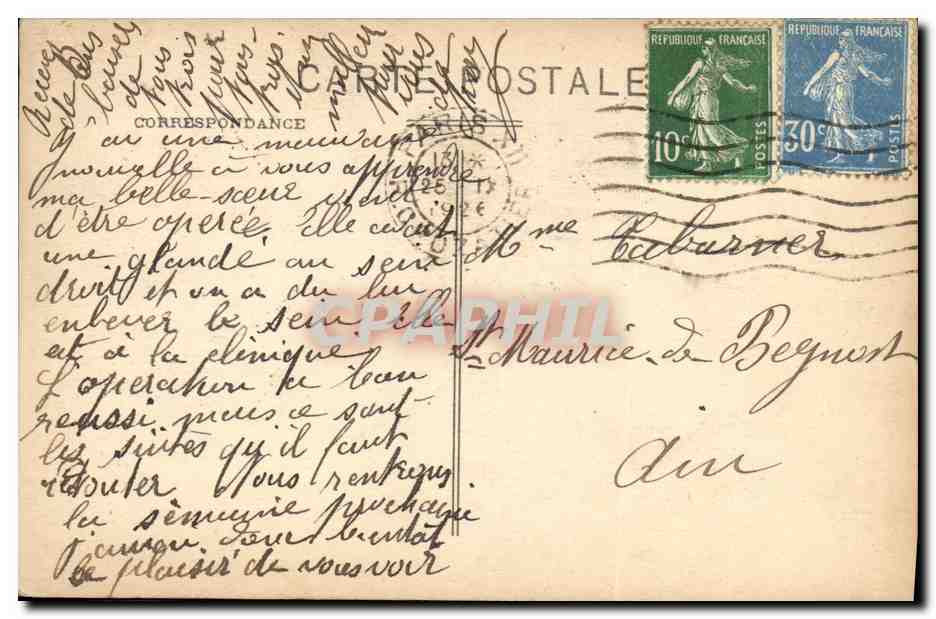 CARTE POSTALE
CORRESPONDANCE
RÉPUBLIQUE FRANÇAISE
10c
POSTES
RÉPUBLIQUE FRANÇAISE
30c
POSTES
1926
J'ai une mauvaise
nouvelle à vous apprendre
ma belle-sœur vient
d'être operée. Elle avait
une glande au sein
droit et on a du lui
enlever le sein. Elle
est à la clinique
L'operation a bien
reussi mais ce sont
les suites qu'il faut
redouter Nous rentrons
la semaine prochaine
j'aurai donc bientôt
le plaisir de vous voir
Recevez
de nous
tous
trois
pour
vous
meilleurs
Mme Taburner
St Maurice de Beynost
Ain
CPAPHIL